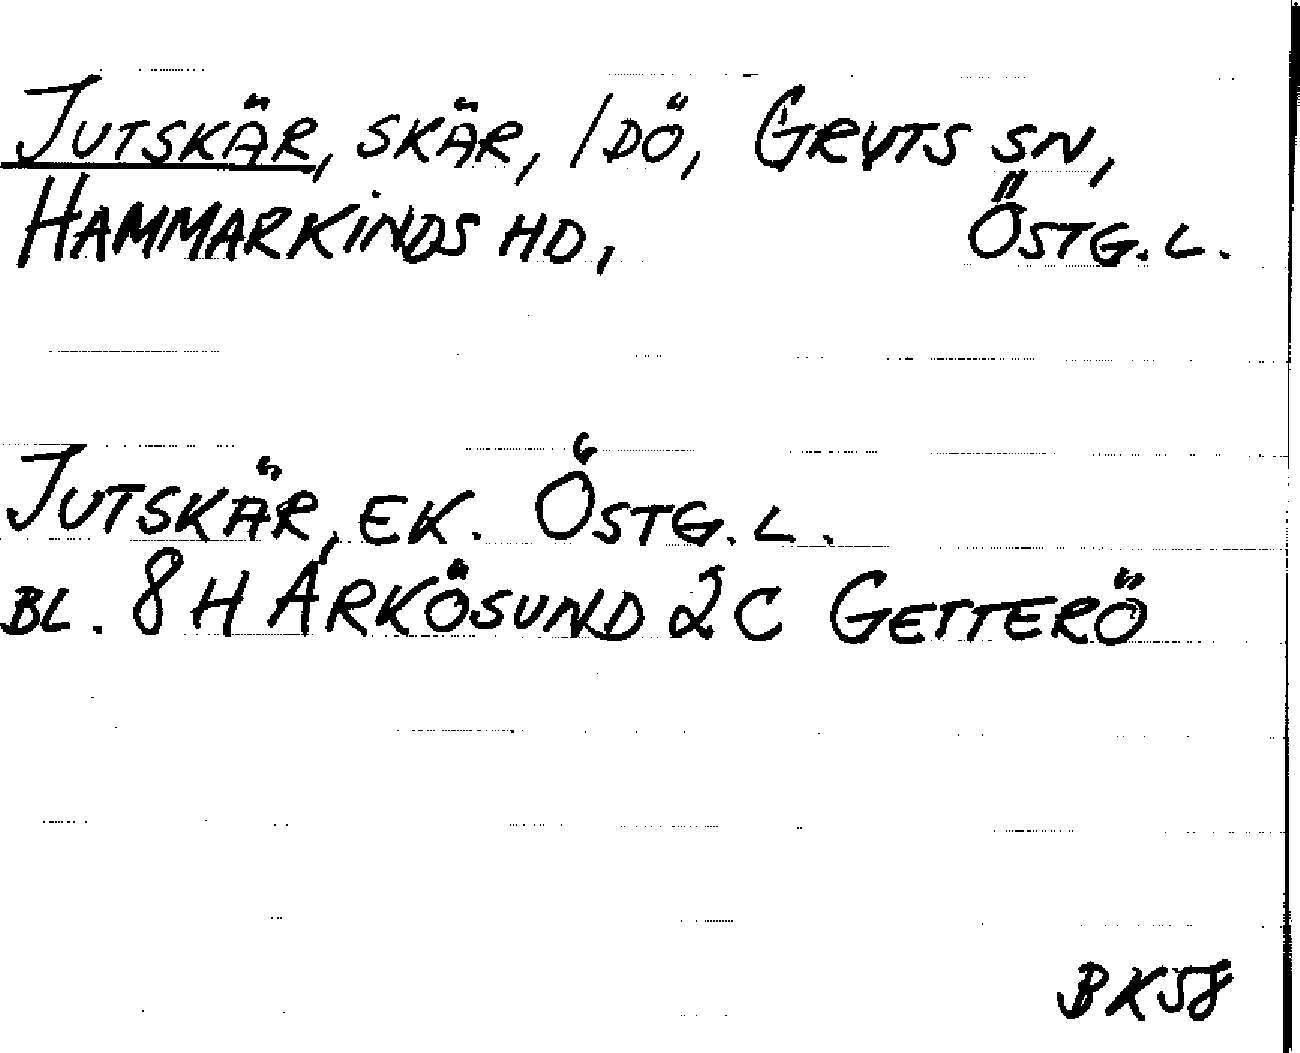 JUTSKÄR, SKÄR, IDÖ, GRYTS SN,
HAMMARKINDS HD, ÖSTG. L.
JUTSKÄR, EK. ÖSTG. L.
BL. 8 H ARKÖSUND 2 C GETTERÖ
BK58